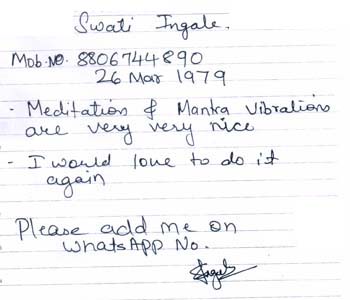 Swati Ingale.
Mob.No. 8806744890
26 Mar 1979
- Meditation & Mantra Vibrations
are very very nice
- I would love to do it
again
Please add me on
WhatsApp No.